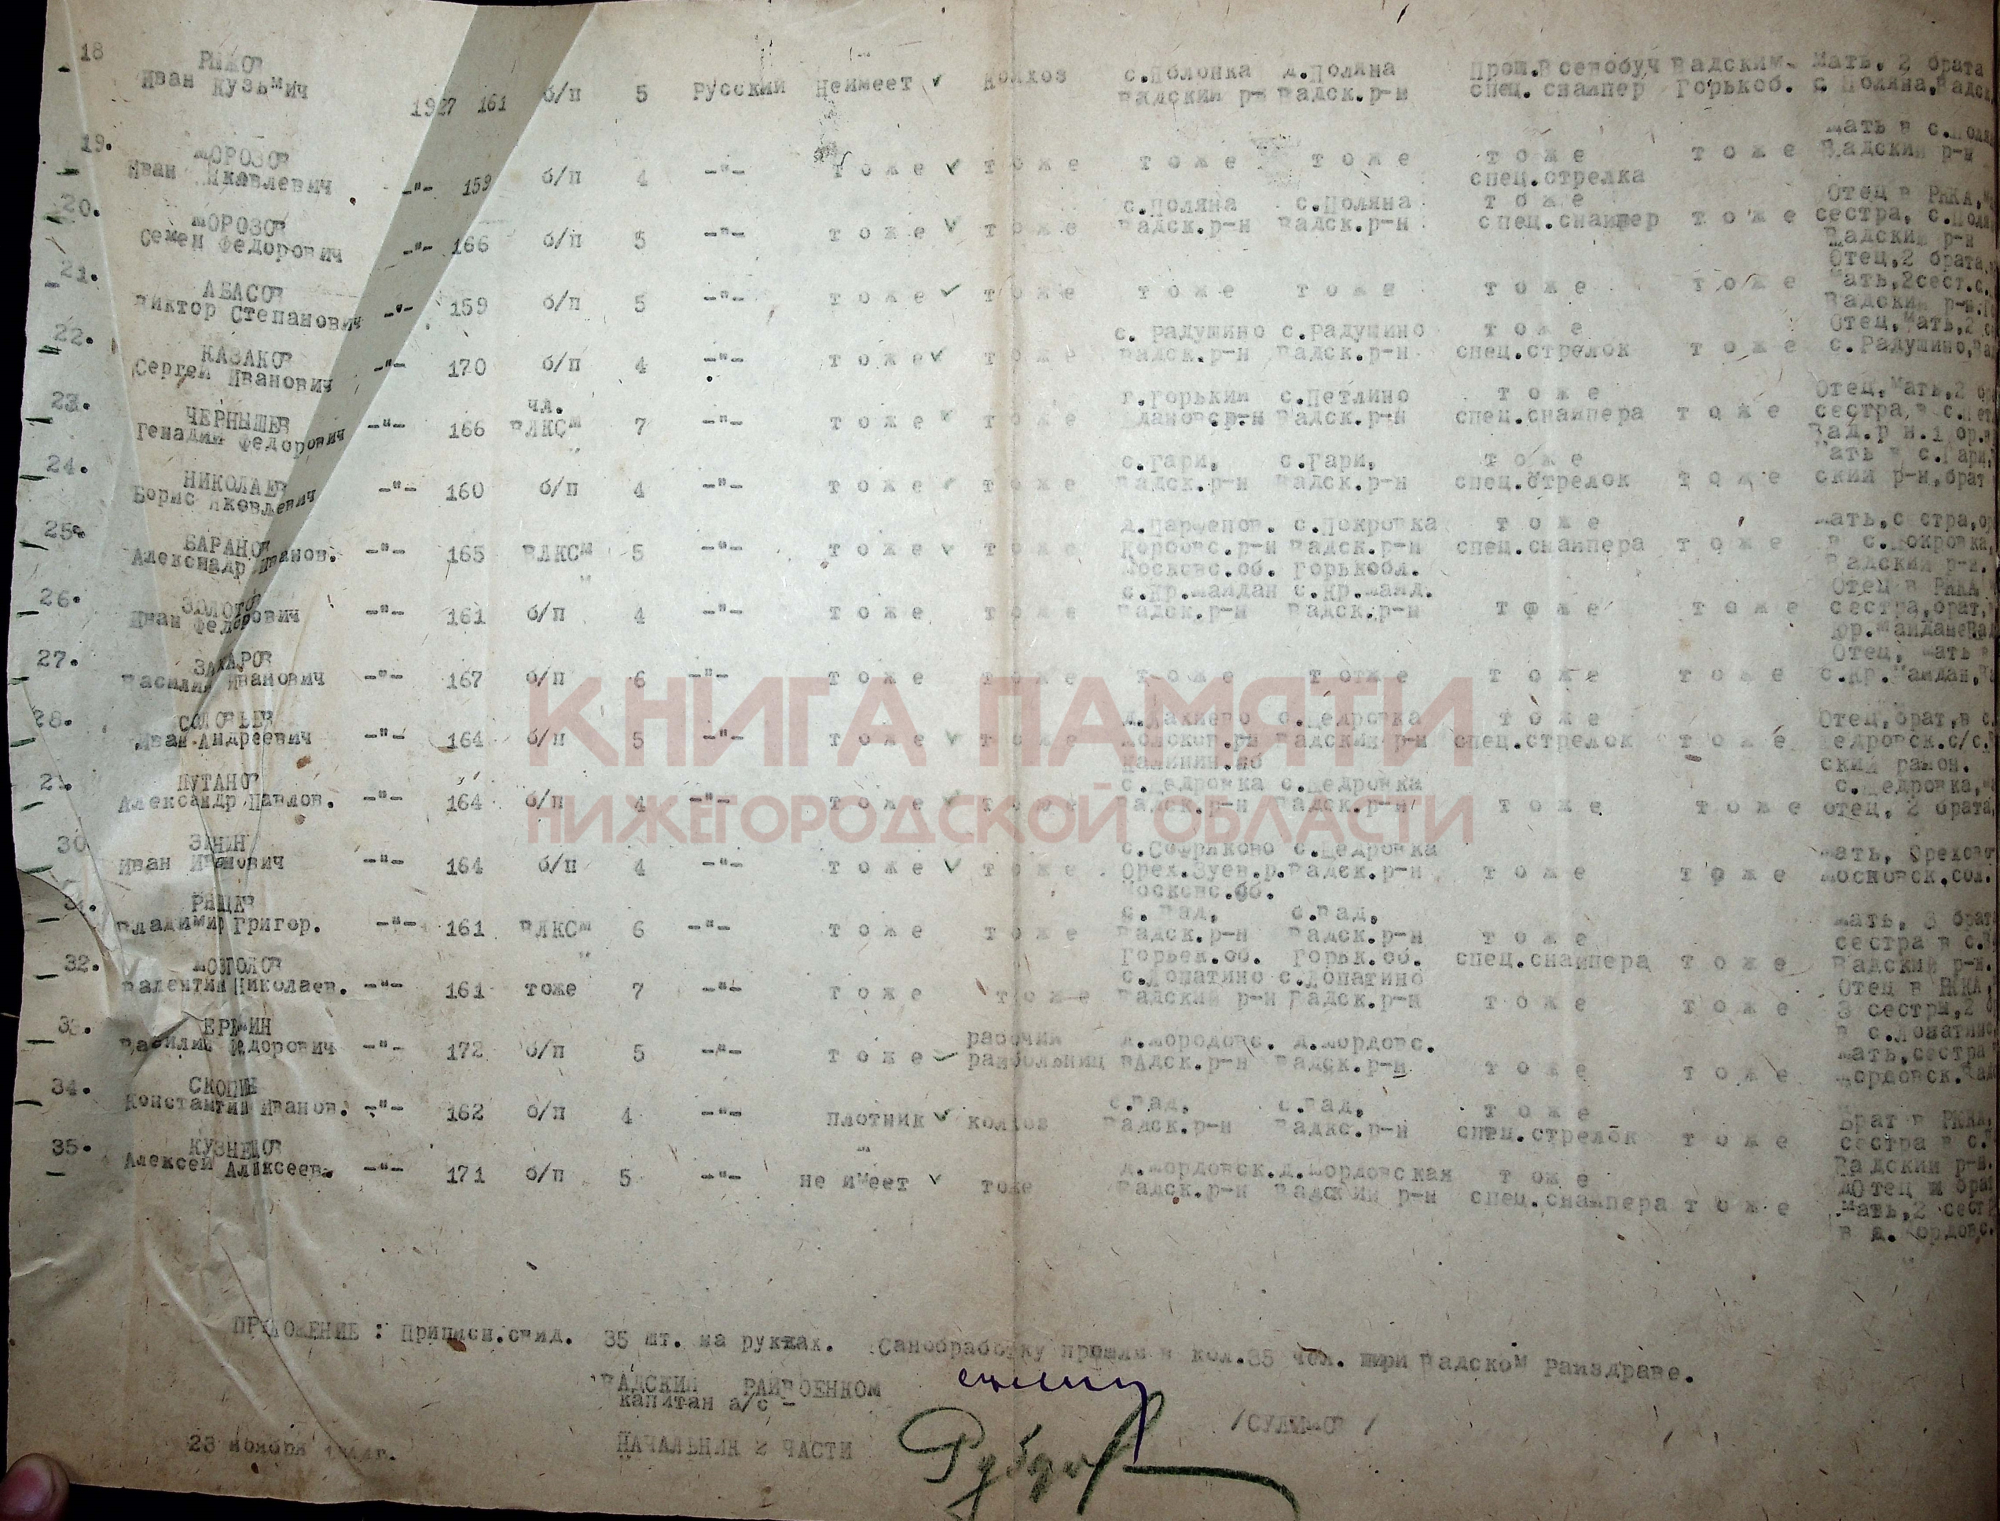 18 РЫЖОВ
Иван Кузьмич 1927 161 б/п 5 Русский Неимеет колхоз с.Яблонка д.Поляна Прош.Всевобуч Вадским- Мать, 2 брата
Вадский р-н Вадск.р-н спец. снайпер Горькоб. с Поляна,Вадск
Мать в с.Поля
19. МОРОЗОВ
Иван Яковлевич -"- 159 б/п 4 -"- тоже тоже тоже тоже тоже тоже Вадский р-н
спец.стрелка
20. МОРОЗОВ с.Поляна с.Поляна тоже Отец в РККА,
Семен Федорович -"- 166 б/п 5 -"- тоже тоже Вадск.р-н Вадск.р-н спец.снайпер тоже сестра, с.Поля
Вадский р-н
21. АБАСОВ Отец,2 брата,
Виктор Степанович -"- 159 б/п 5 -"- тоже тоже тоже тоже тоже тоже Мать,2сест.с.
Вадский р-н.
22. КАЗАКОВ с. Радушино с.Радушино тоже Отец,Мать,2
Сергей Иванович -"- 170 б/п 4 -"- тоже тоже Вадск.р-н Вадск.р-н спец.стрелок тоже с.Радушино,Ва
23. ЧЕРНЫШЕВ чл. г.Горький с.Петлино тоже Отец,Мать,2
Генадий Федорович -"- 166 ВЛКСМ 7 -"- тоже тоже Вадск.р-н спец.снайпера тоже сестра,в с.Пет
24. НИКОЛАЕВ с.Гари, с.Гари, тоже Мать в с.Гари,
Борис Яковлевич -"- 160 б/п 4 -"- тоже тоже Вадск.р-н Вадск.р-н спец.стрелок тоже ский р-н,брат
25. БАРАНОВ д.Парфенов. с.Покровка тоже Мать,сестра,
Александр Иванов. -"- 165 ВЛКСМ 5 -"- тоже тоже Коробовс.р-н Вадск.р-н спец.снайпера тоже в с.Покровка,
Московс.об. Горькобл. Вадский р-н.
26. ЗОЛОТОВ с.Кр.Майдан с.Кр.Майд. Отец в РККА
Иван Федорович -"- 161 б/п 4 -"- тоже тоже Вадск.р-н Вадск.р-н тоже тоже сестра,брат,
27. ЗАХАРОВ Отец, мать в
Василий Иванович -"- 167 б/п 6 -"- тоже тоже тоже тотже тоже тоже с.Кр.Майдан,
28. СОЛОВЬЕВ с.Щедровка тоже Отец,брат,в с.
Иван Андреевич -"- 164 б/п 5 -"- тоже тоже Вадский р-н спец.стрелок тоже Щедровск.с/с.
Калинин.об ский район.
29. ПУТАНОВ с.Щедровка с.Щедровка с.Щедровка,
Александр Павлов. -"- 164 б/п 4 -"- тоже тоже Вадск.р-н Вадск.р-н тоже тоже отец, 2 брата,
30 ЗИНИН с.Софряково с.Щедровка
Иван Иванович -"- 164 б/п 4 -"- тоже тоже Орех.Зуев.р.Вадск.р-н тоже тоже Мать, Орехово
Московс.об. Московск.обл.
31. с. Вад, с.Вад, Мать, 3 брат
Владимир Григор. -"- 161 ВЛКСМ 6 -"- тоже тоже Вадск.р-н Вадск.р-н тоже сестра в с.
Горьк.об. Горьк.об. спец.снайпера тоже Вадский р-н.
32. МОЗГОЛОВ с.Лопатино с.Лопатино Отец в РККА,
Валентин Николаев. -"- 161 тоже 7 -"- тоже тоже Вадский р-н Вадск.р-н тоже тоже 3 сестры,2
в с.Лопатино
33. ЕРШИН рабочий д.Мородовс. д.Мордовс. Мать,сестра
Василий Федорович -"- 172 б/п 5 -"- тоже райбольниц ВАдск.р-н Вадск.р-н тоже тоже Мордовск.
34. СКОПИН с.Вад, с.Вад, тоже Брат в РККА,
Константин Иванов. -"- 162 б/п 4 -"- плотник колхоз Вадск.р-н Вадкс.р-н спец.стрелок тоже сестра в с.
Вадский р-н.
35. КУЗНЕЦОВ д.Мордовск.д.Мордовская тоже Отец и бра
Алексей Алексеев. -"- 171 б/п 5 -"- не имеет тоже Вадск.р-н Вадский р-н спец.снайпера тоже Мать,2 сест
в д. Мордовс.
КНИГА ПАМЯТИ
НИЖЕГОРОДСКОЙ ОБЛАСТИ
ПРИЛОЖЕНИЕ : Приписн.свид. 35 шт. на руках. Санобработку прошли в кол.35 чел. при Вадском Райздраве.
ВАДСКИЙ РАЙВОЕННКОМ
капитан а/с -
/СУЛИМОВ /
23 ноября 1944г. НАЧАЛЬНИК 2 ЧАСТИ